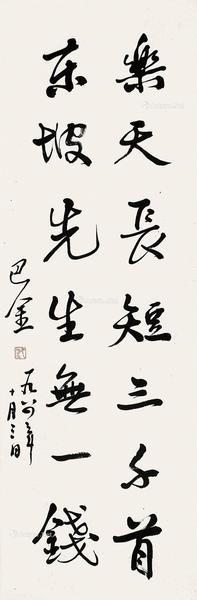 樂天長短三千首
東坡先生無一錢
巴金
一九八〇年
十月三日